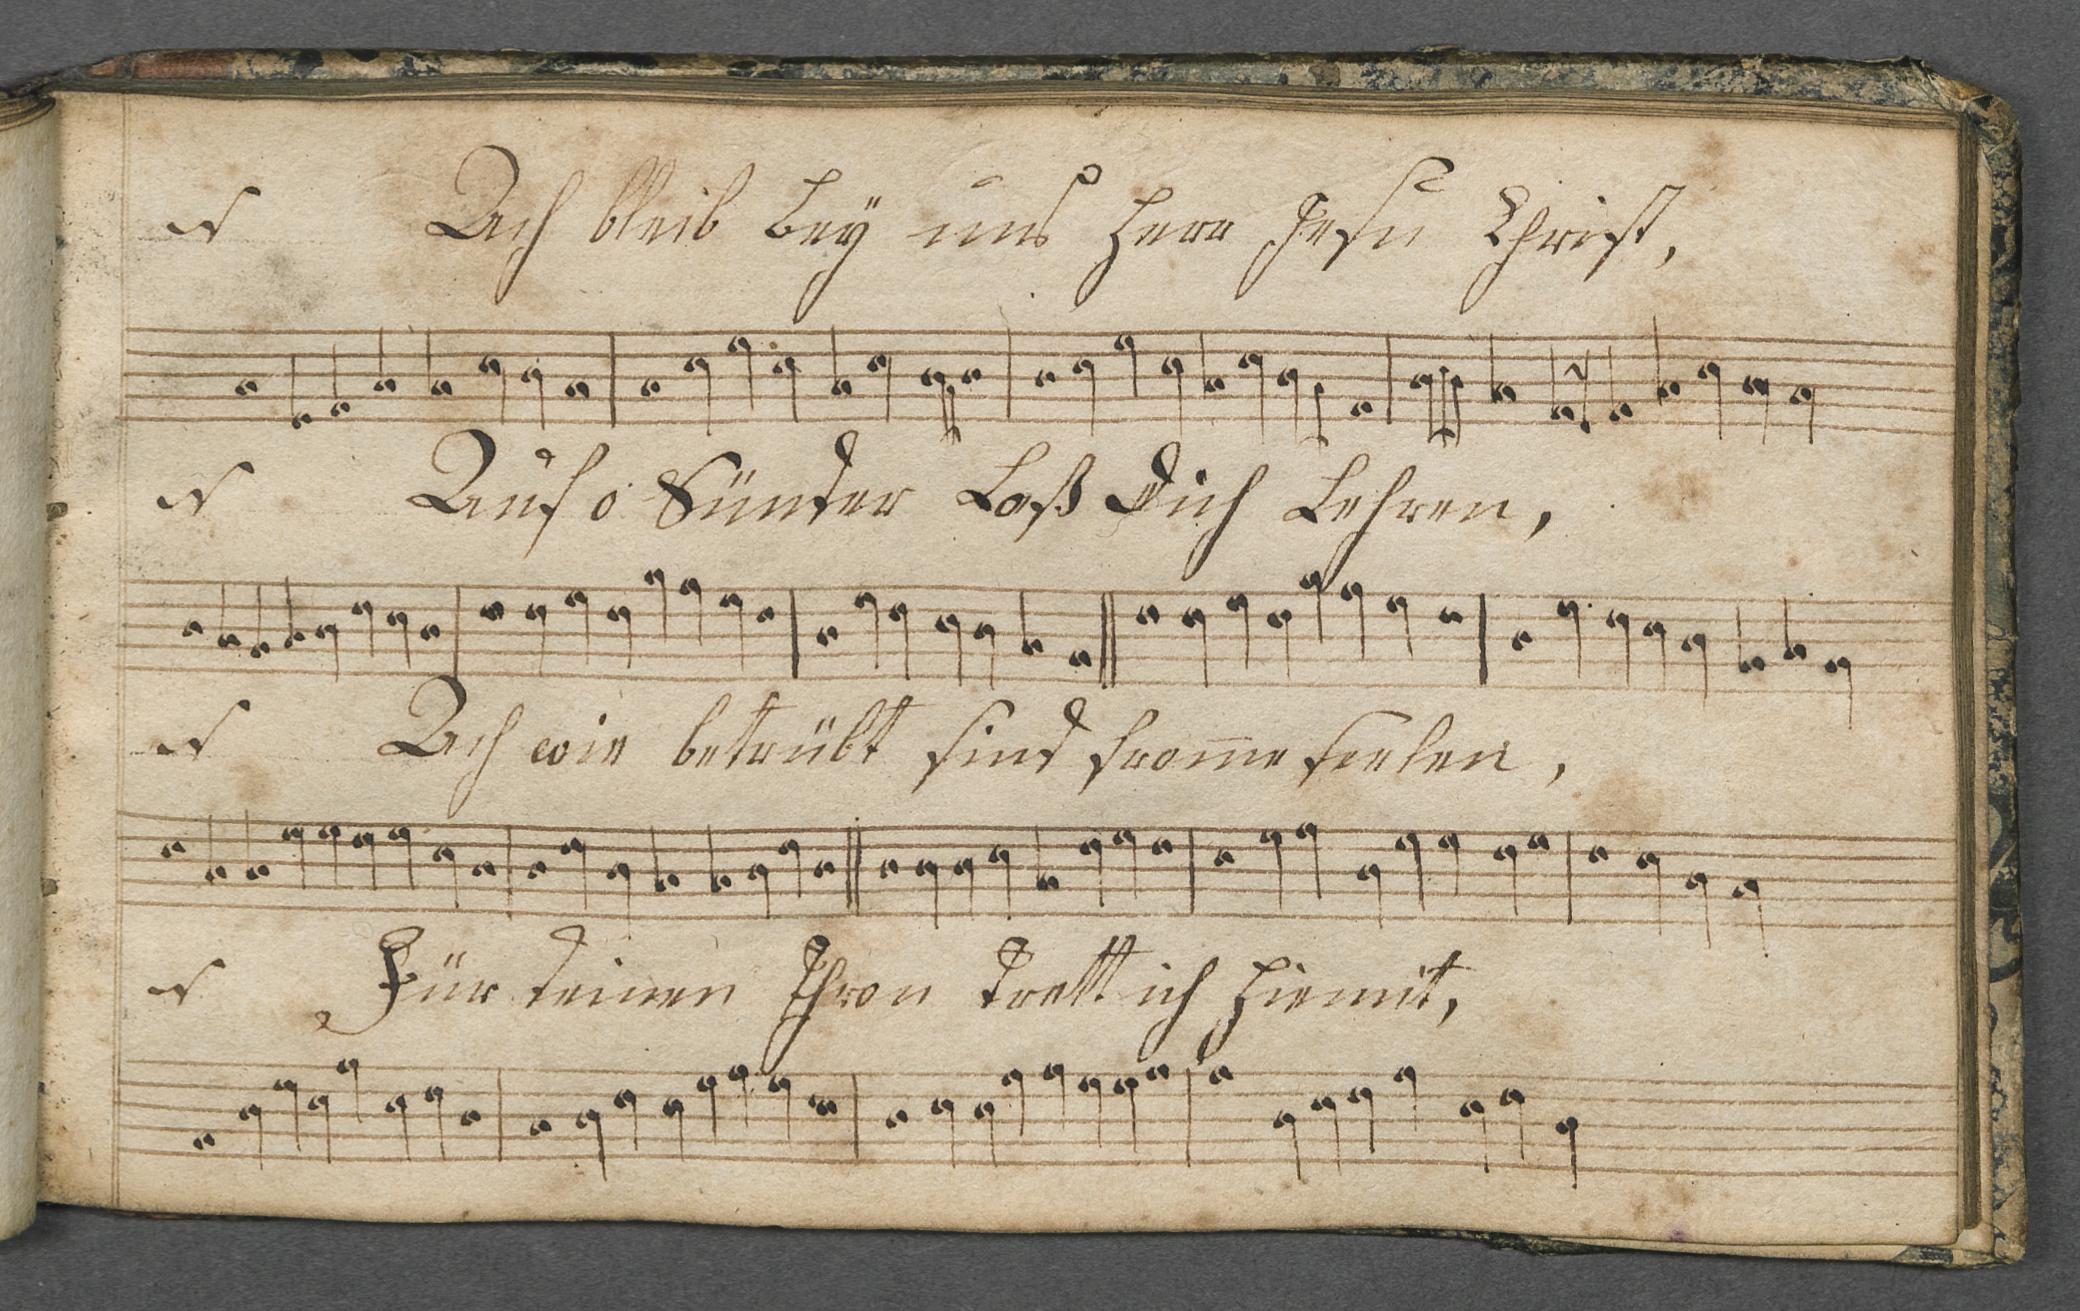 N Ach bleib bey uns Herr Jesu Christ,
N Auf o Sünder Laß Dich Lehren,
N Ach wie betrübt sind from̅e seelen,
N Für deinen Thron Trett ich hiemit,